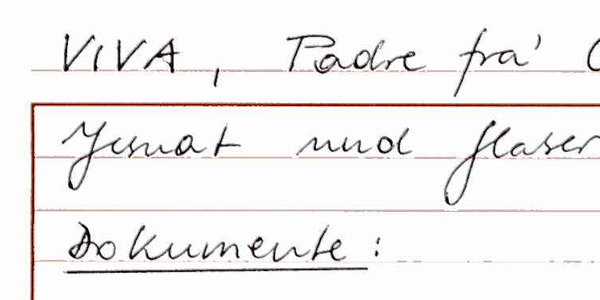 VIVA, Padre fra'
Jesuat und Glaser
Dokumente: